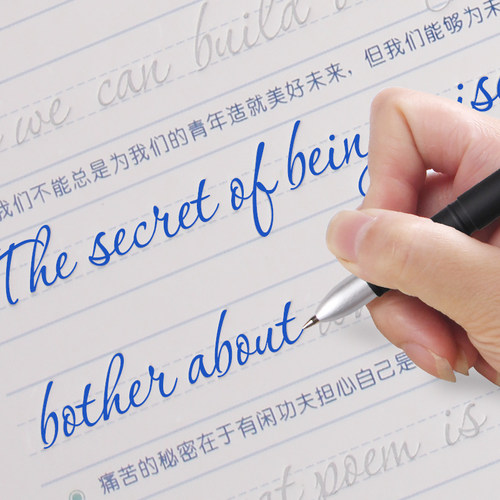 we can build
我们不能总是为我们的青年造就美好未来，但我们能够为未
The secret of being is
bother about
痛苦的秘密在于有闲功夫担心自己是
poem is